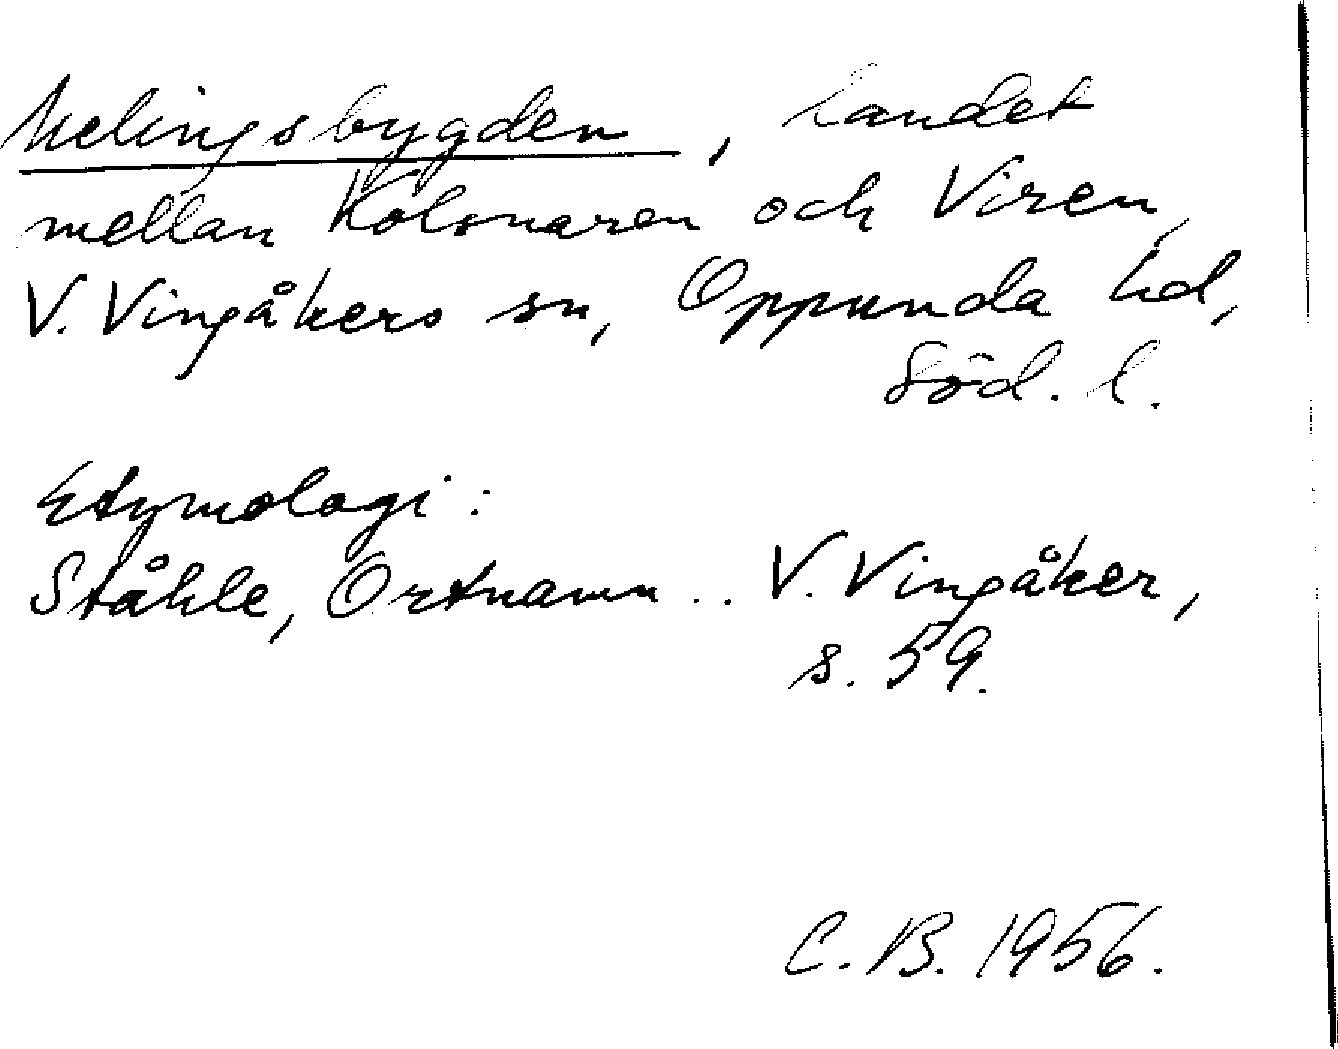 Melingsbygden, landet
mellan Kolsnaren och Viren,
V. Vingåkers sn, Oppunda hd,
Söd. l.
Etymologi:
Ståhle, Ortnamn .. V. Vingåker,
s. 59.
C. B. 1956.